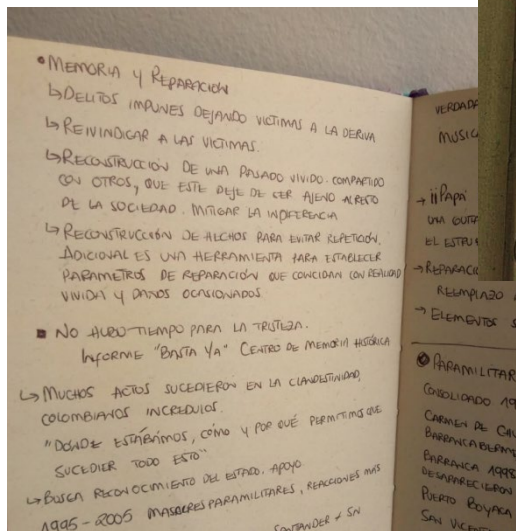 • MEMORIA Y REPARACIÓN
↳ DELITOS IMPUNES DEJANDO VICTIMAS A LA DERIVA
↳ REIVINDICAR A LAS VICTIMAS.
↳ RECONSTRUCCIÓN DE UNA PASADO VIVIDO. COMPARTIDO
CON OTROS, QUE ESTE DEJE DE SER AJENO AL RESTO
DE LA SOCIEDAD. MITIGAR LA INDIFERENCIA
↳ RECONSTRUCCIÓN DE HECHOS PARA EVITAR REPETICIÓN.
ADICIONAL ES UNA HERRAMIENTA PARA ESTABLECER
PARAMETROS DE REPARACIÓN QUE COINCIDAN CON REALIDAD
VIVIDA Y DAÑOS OCASIONADOS.
▪ NO HUBO TIEMPO PARA LA TRISTEZA.
INFORME "BASTA YA" CENTRO DE MEMORIA HISTÓRICA
↳ MUCHOS ACTOS SUCEDIERON EN LA CLANDESTINIDAD,
COLOMBIANOS INCREDULOS.
"DONDE ESTÁBAMOS, CÓMO Y POR QUÉ PERMITIMOS QUE
SUCEDIER TODO ESTO"
↳ BUSCA RECONOCIMIENTO DEL ESTADO. APOYO
1995 - 2005 MASACRES PARAMILITARES, REACCIONES MAS
SANTANDER + SN
MUSIC
→ ¡¡PAPÁ
UNA
EL
→ REPARACI
REEMPLAZO
→ ELEMENTOS S
PARAMILITAR
CONSOLIDADO 19
CARMEN DE CHU
BARRANCABERME
BARRANCA 1998
DESAPARECIERON
PUERTO BOYACA
SAN VICENTE